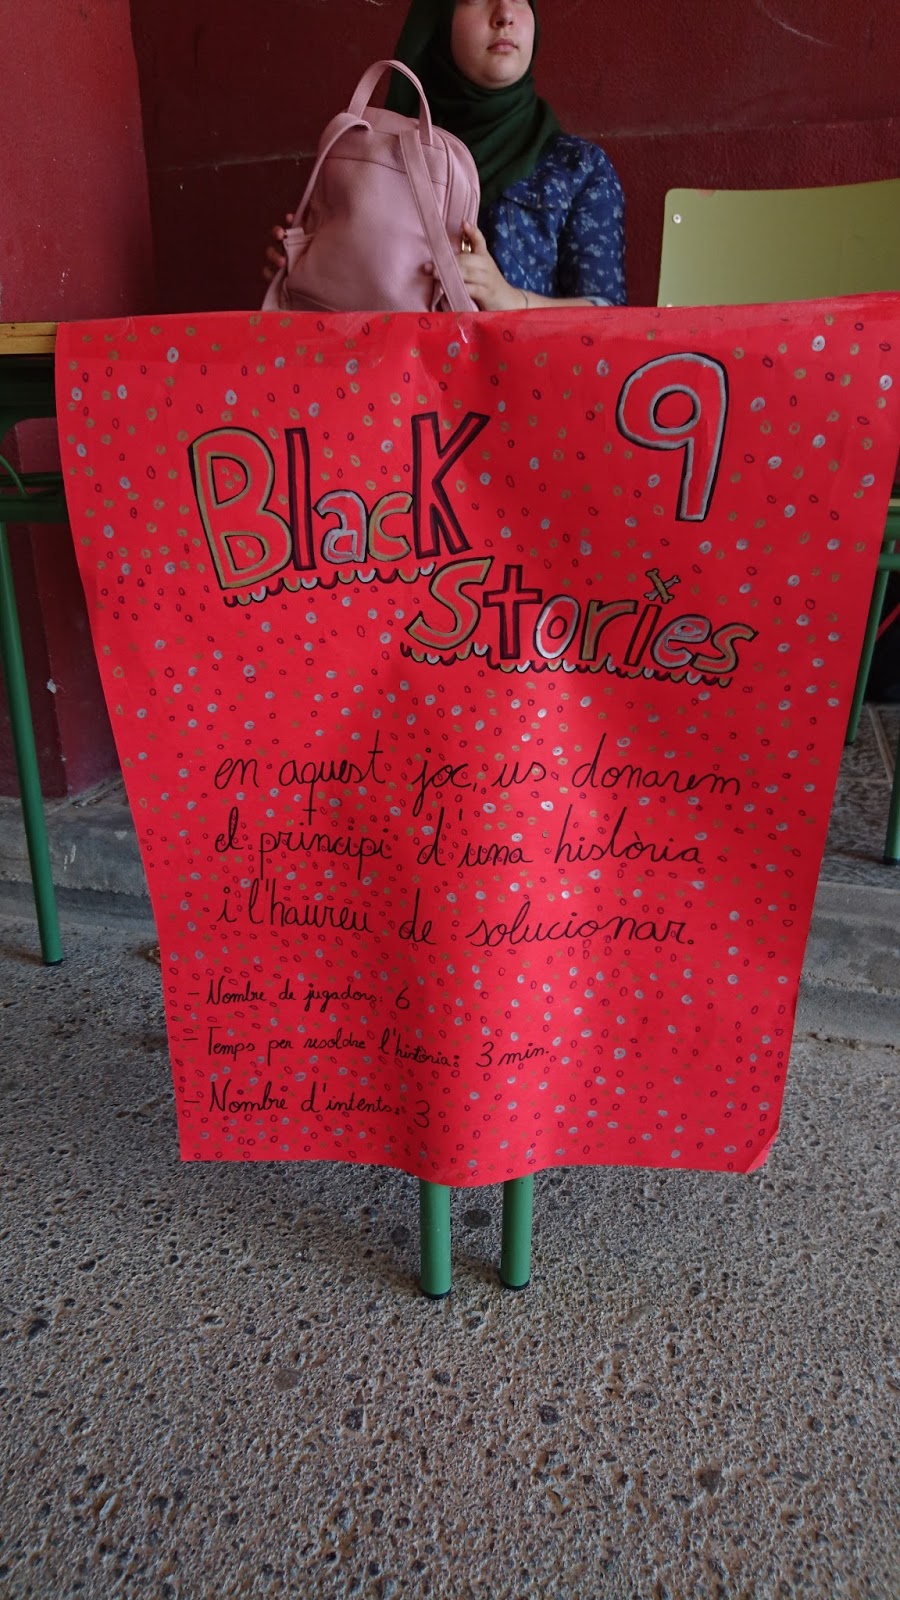 9
Black
Stories
en aquest joc, us donarem
el principi d'una història
i l'haureu de solucionar.
- Nombre de jugadors: 6
- Temps per resoldre l'història: 3 min.
- Nombre d'intents: 3